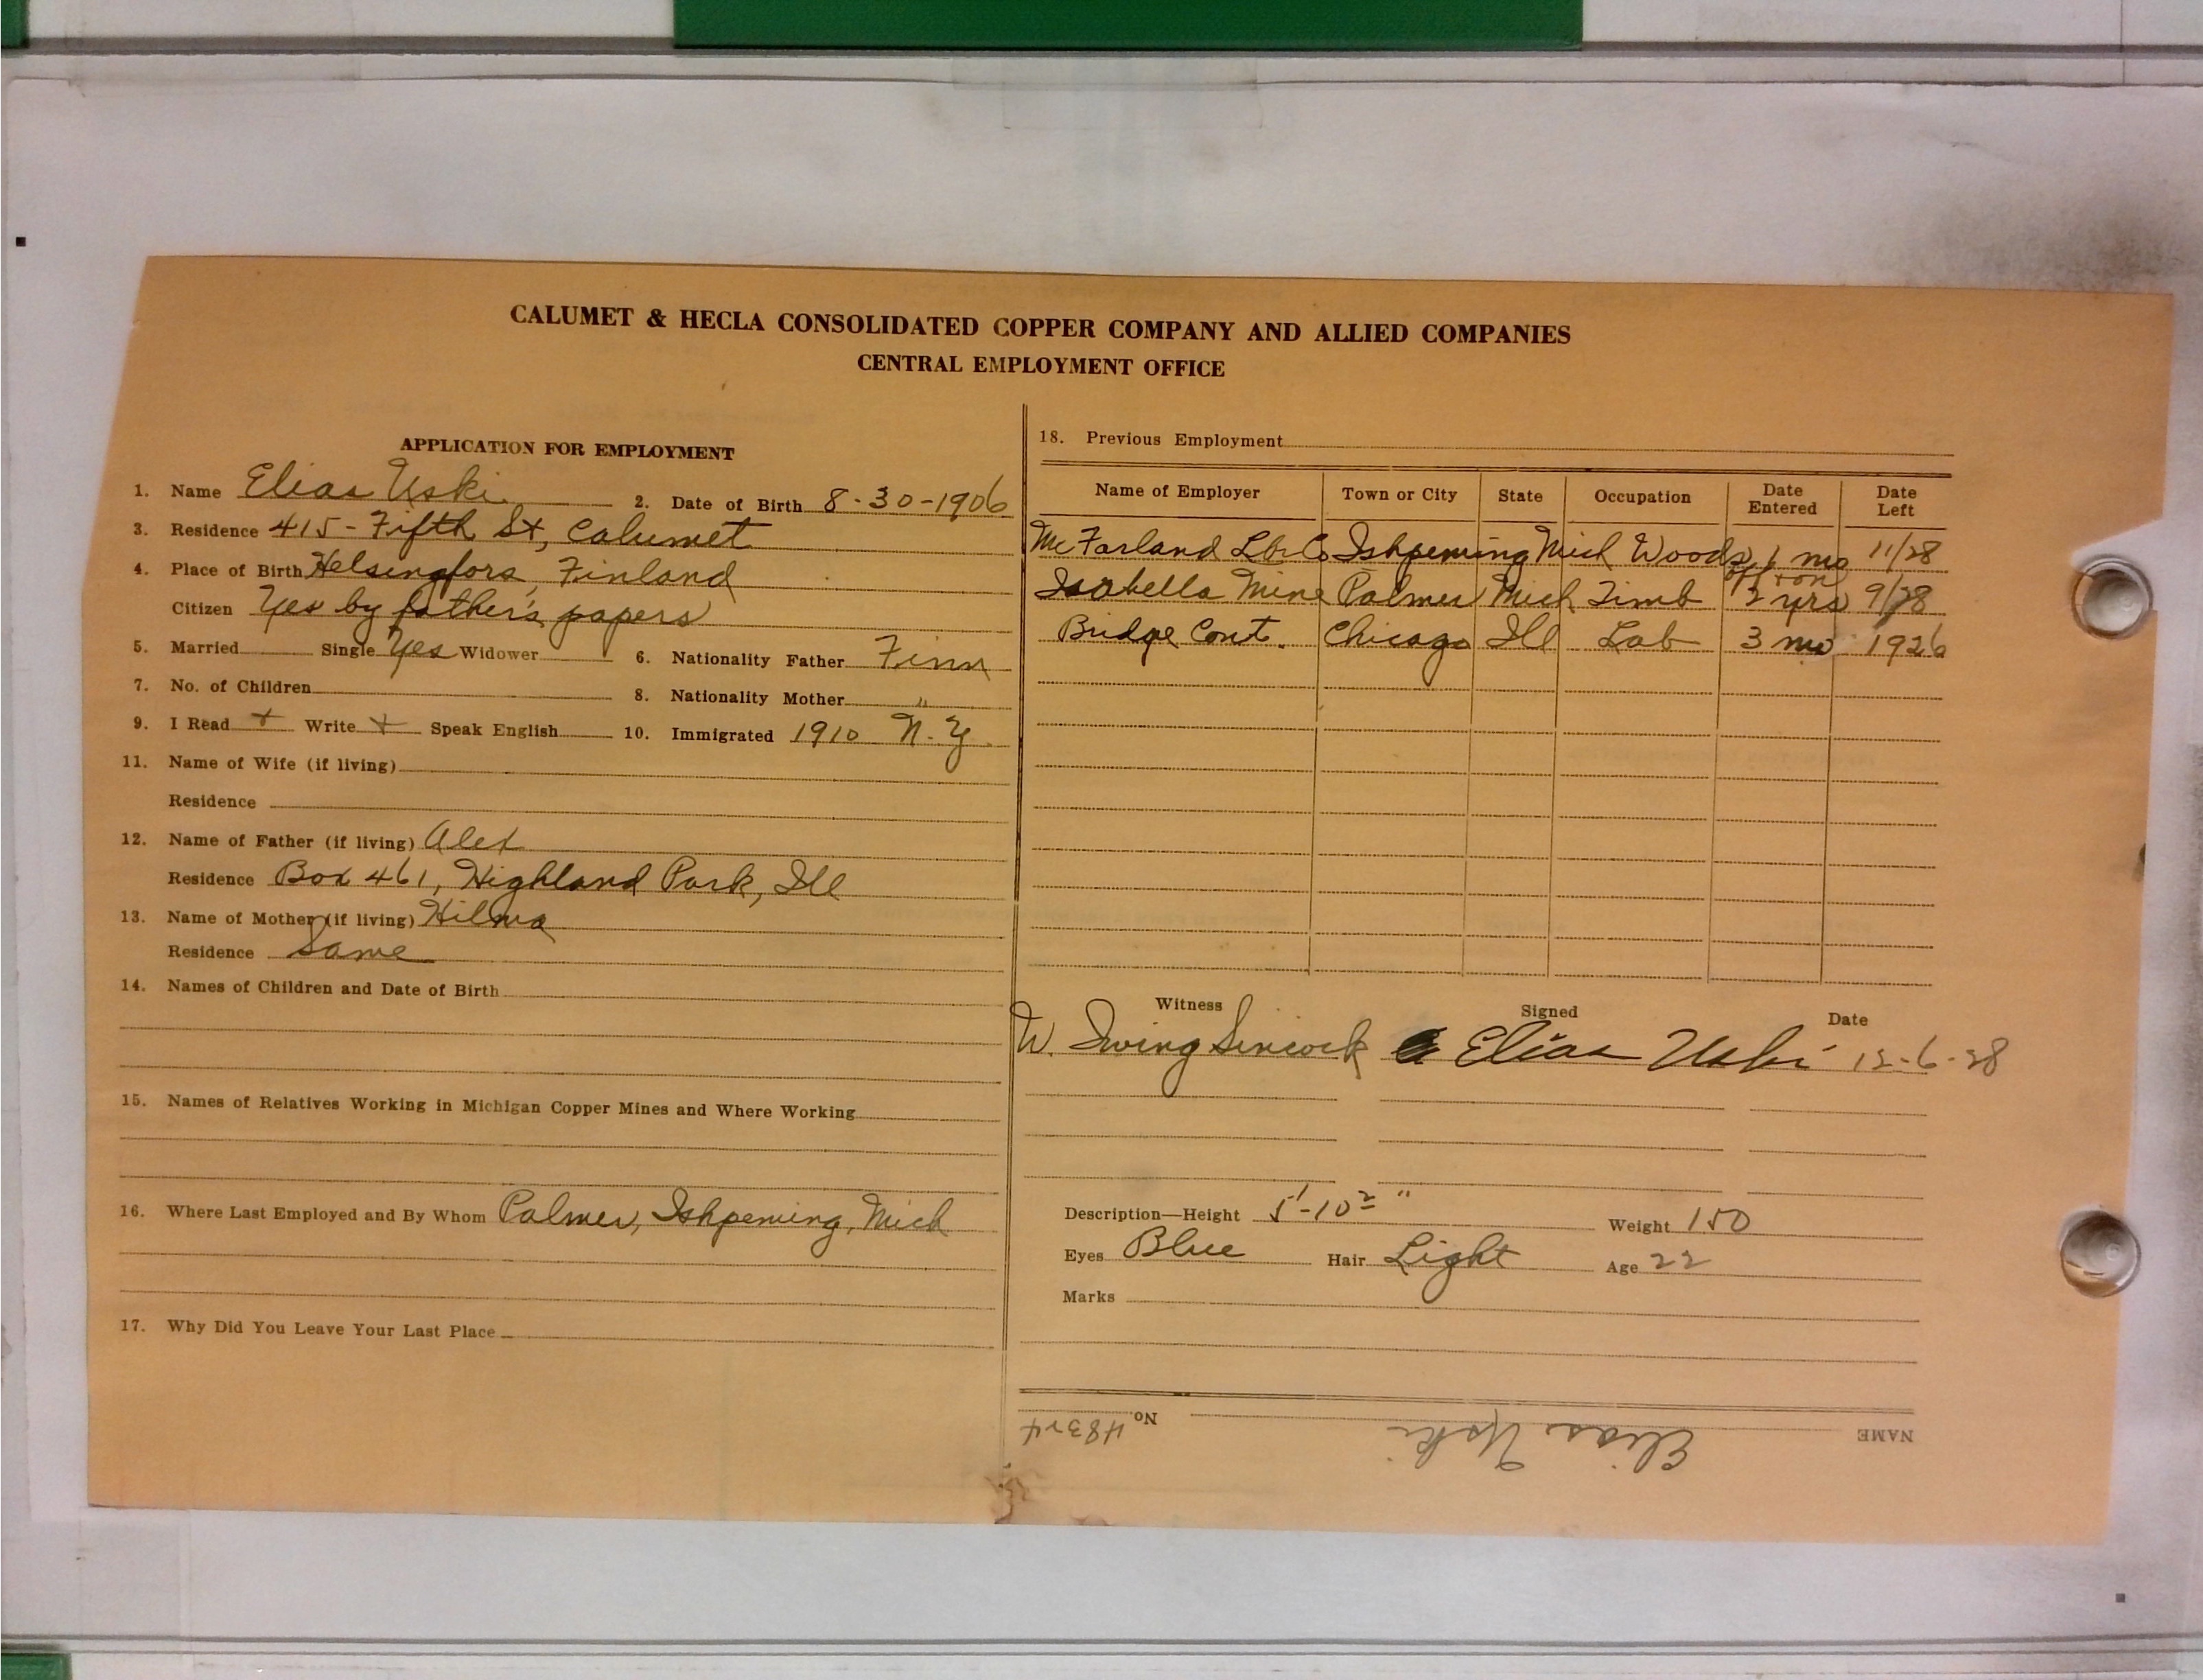 CALUMET & HECLA CONSOLIDATED COPPER COMPANY AND ALLIED COMPANIES
CENTRAL EMPLOYMENT OFFICE
APPLICATION FOR EMPLOYMENT
1. Name Elias Uski 2. Date of Birth 8-30-1906
3. Residence 415 - Fifth St, Calumet
4. Place of Birth Helsingfors, Finland
Citizen Yes by father's papers
5. Married Single Yes Widower 6. Nationality Father Finn
7. No. of Children 8. Nationality Mother "
9. I Read + Write + Speak English 10. Immigrated 1910 N.Y.
11. Name of Wife (if living)
Residence
12. Name of Father (if living) Alex
Residence Box 461, Highland Park, Ill
13. Name of Mother (if living) Hilma
Residence Same
14. Names of Children and Date of Birth
15. Names of Relatives Working in Michigan Copper Mines and Where Working
16. Where Last Employed and By Whom Palmer, Ishpeming, Mich
17. Why Did You Leave Your Last Place
18. Previous Employment
Name of Employer Town or City State Occupation Date Entered Date Left
McFarland Lbr Co Ishpeming Mich Woods 1 mo 11/28
off + on
Isabella Mine Palmer Mich Timb 2 yrs 9/28
Bridge Cont. Chicago Ill Lab 3 mo 1926
Witness Signed Date
W. Irving Sincock Elias Uski 12-6-28
Description—Height 5'-10½" Weight 150
Eyes Blue Hair Light Age 22
Marks
NAME Elias Uski No. 48324